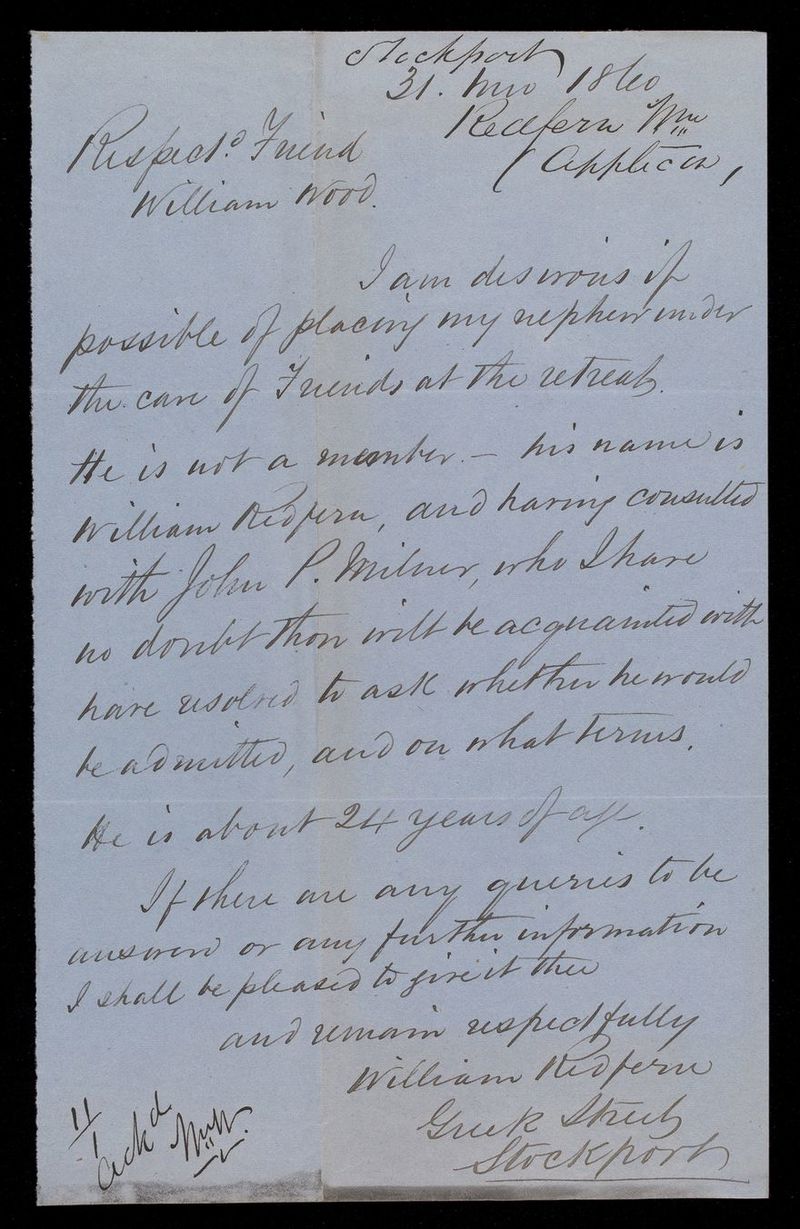 Stockport
31. 1mo 1860
Redfern Wm
(Applicn,
Respectd. Friend
William Wood.
I am desirous if
possible of placing my nephew under
the care of Friends at the retreat.
He is not a member. – his name is
William Redfern, and having consulted
with John P. Milner, who I have
no doubt thou wilt be acquainted with
have resolved to ask whether he would
be admitted, and on what terms.
He is about 24 years of age.
If there are any queries to be
answerd or any further information
I shall be pleased to give it thee
and remain respectfully
William Redfern
Greek Street
Stockport
Ackd